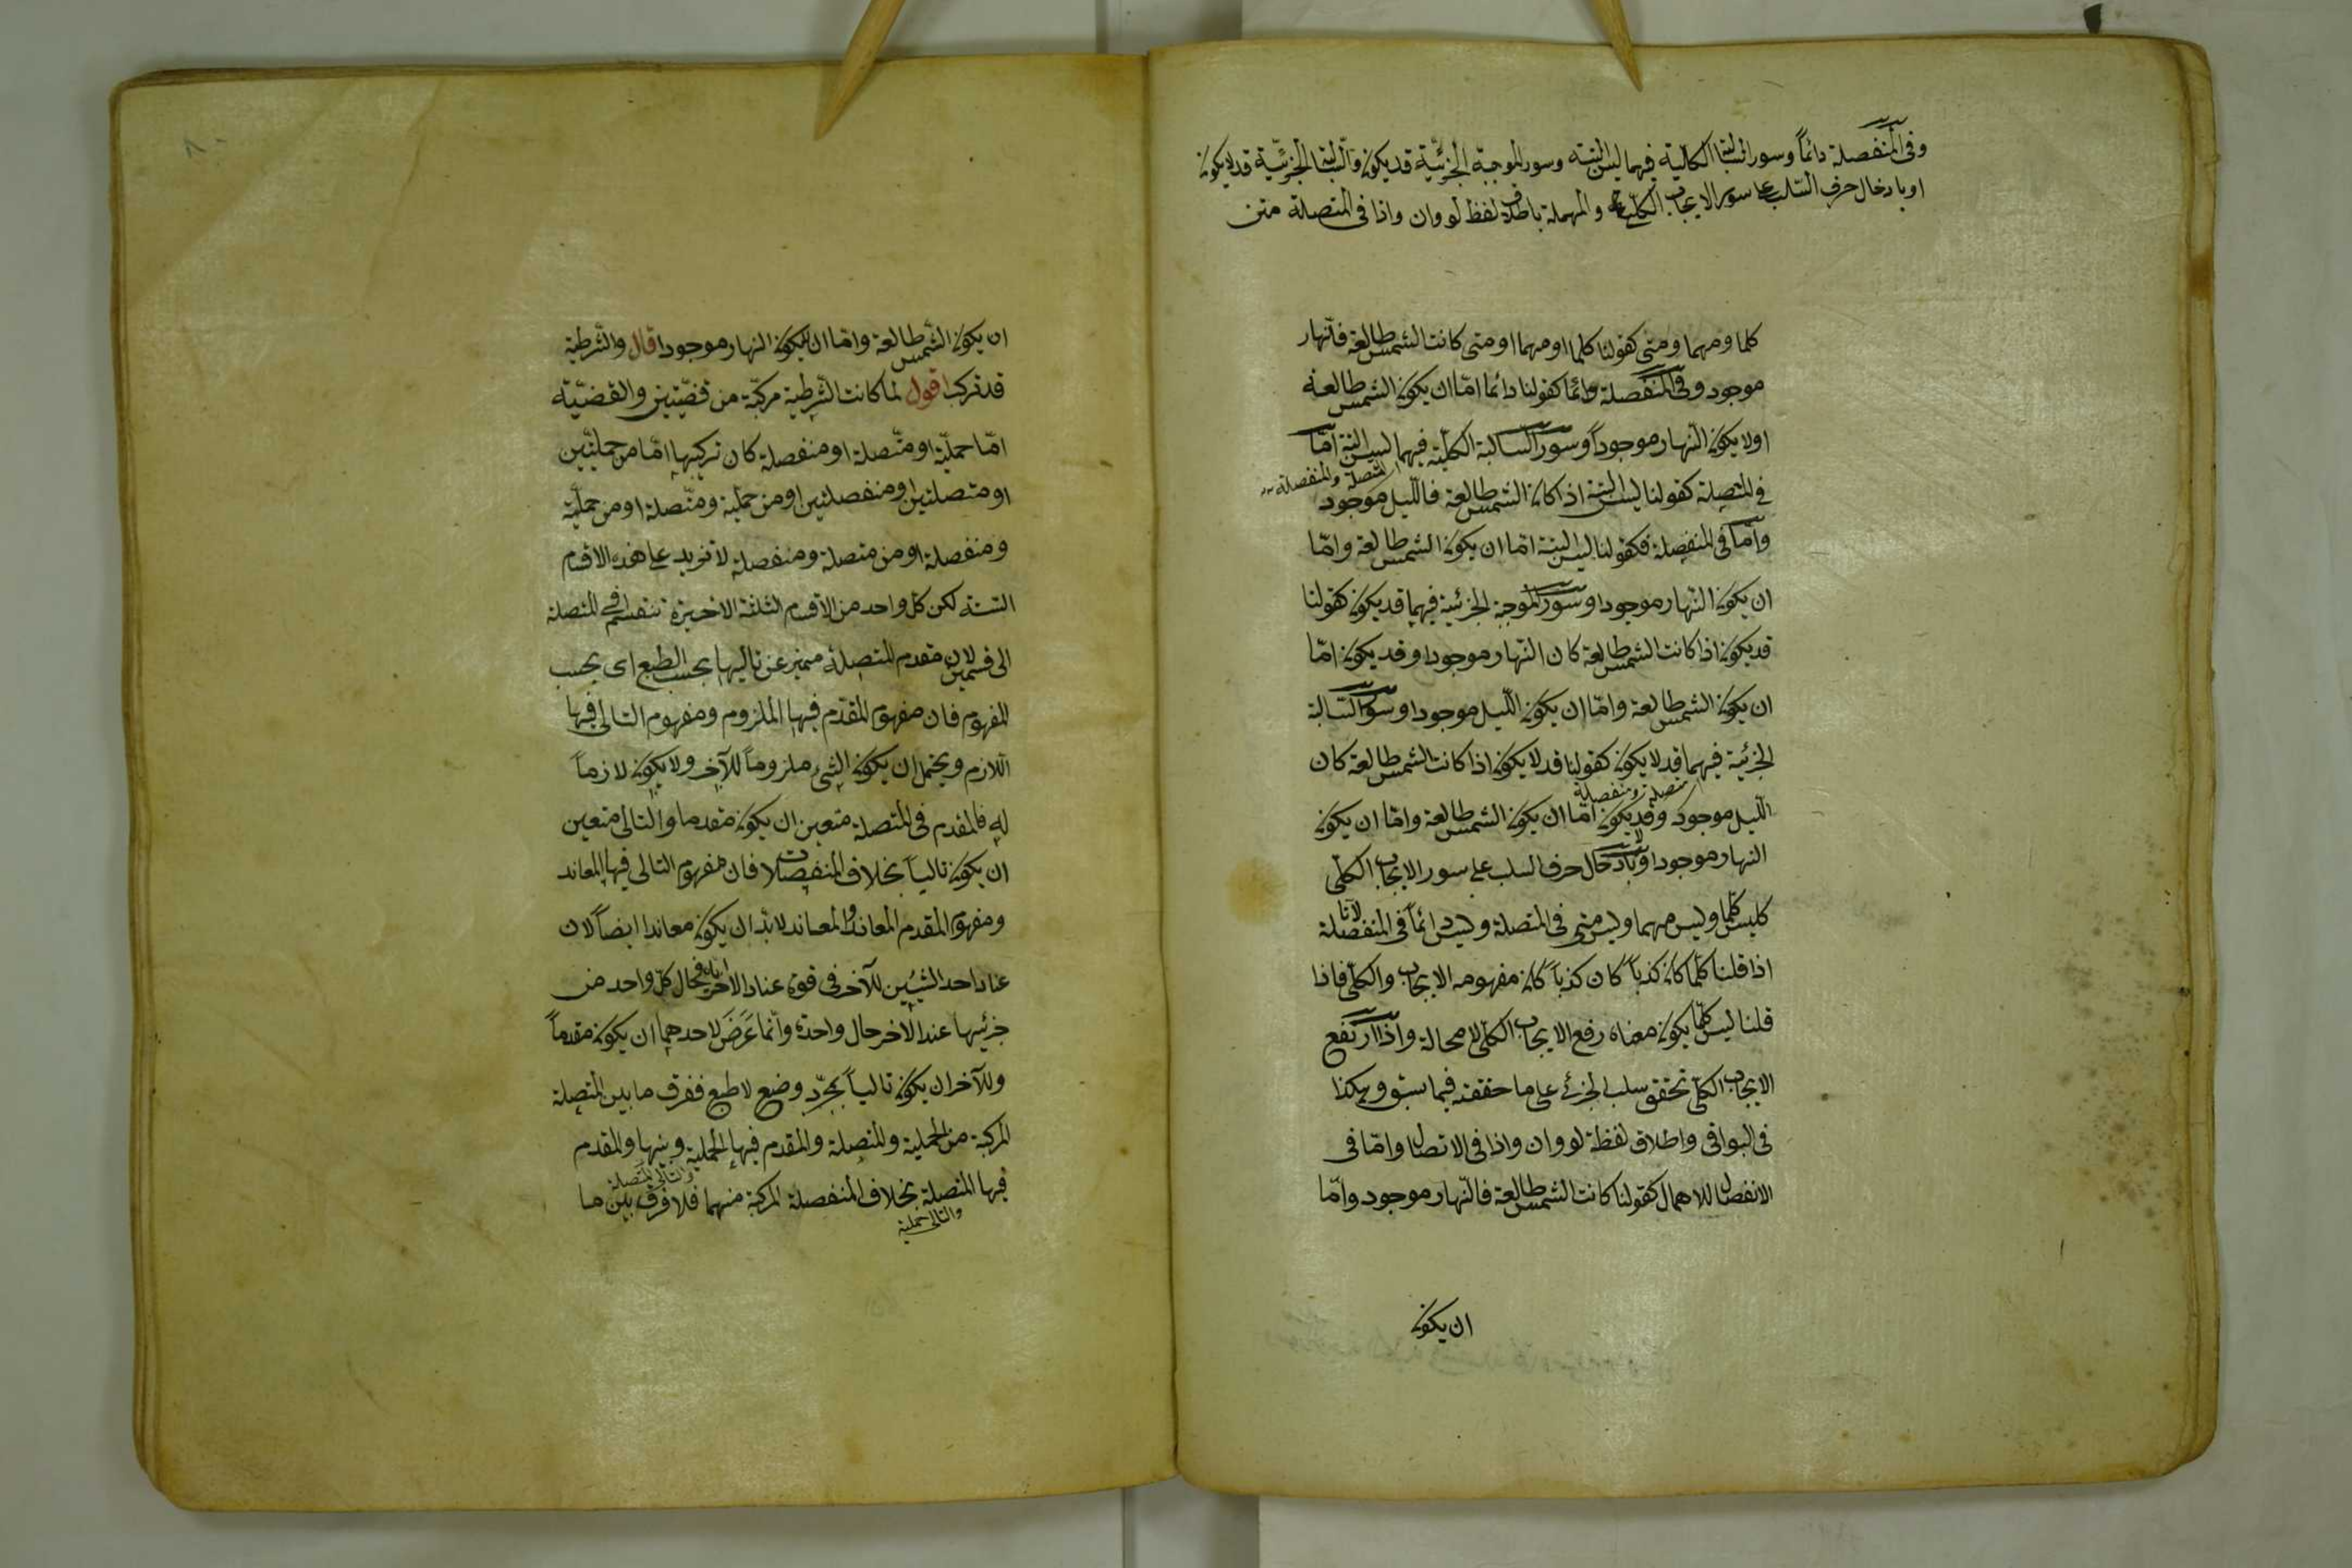 وفى المنفصلة دائماً وسور السالبة الكلية فيهما ليس البتة وسور الموجبة الجزئية قد يكون والسالبة الجزئية قد لا يكون
او بادخال حرف السلب على سور الايجاب الكلى والمهملة باطلاق لفظ لو وان واذا فى المتصلة متن
كلما ومهما ومتى كقولنا كلما او مهما او متى كانت الشمس طالعة فالنهار
موجود وفى المنفصلة دائما كقولنا دائما امّا ان يكون الشمس طالعة
اولا يكون النهار موجوداً وسور السالبة الكلية فيهما ليس البتة امّا
المتصلة والمنفصلة
فى المتصلة كقولنا ليس البتة اذا كان الشمس طالعة فالليل موجود
وامّا فى المنفصلة فكقولنا ليس البتة امّا ان يكون الشمس طالعة وامّا
ان يكون النهار موجودا وسور الموجبة الجزئية فيهما قد يكون كقولنا
قد يكون اذا كانت الشمس طالعة كان النهار موجودا وقد يكون امّا
ان يكون الشمس طالعة وامّا ان يكون الليل موجودا وسور السالبة
الجزئية فيهما قد لا يكون كقولنا قد لا يكون اذا كانت الشمس طالعة كان
متصلة ومنفصلة
الليل موجود وقد لا يكون امّا ان يكون الشمس طالعة وامّا ان يكون
النهار موجودا وبادخال حرف السلب على سور الايجاب الكلّى
كليس كلّما وليس مهما وليس متى فى المتصلة وليس دائماً فى المنفصلة لانا
اذا قلنا كلّما كان كذباً كان كذباً كان مفهومه الايجاب والكلّى فاذا
قلنا ليس كلّما يكون معناه رفع الايجاب الكلّى لا محالة واذا ارتفع
الايجاب الكلّى تحقق سلب الجزئى على ما حققته فيما سبق وهكذا
فى البواقى واطلاق لفظة لو وان واذا فى الاتصال وامّا فى
الانفصال للاهمال كقولنا كانت الشمس طالعة فالنهار موجود وامّا
ان يكون
ان يكون الشمس طالعة وامّا ان لا يكون النهار موجودا قال والشرطية
قد تركب اقول لما كانت الشرطية مركبّة من قضيّتين والقضيّة
امّا حمليّة او متّصلة او منفصلة كان تركيبها امّا من حمليّتين
او متصلتين او منفصلتين او من حملية ومتّصلة او من حمليّة
ومنفصلة او من متصلة ومنفصلة لا تزيد على هذه الاقسام
الستة لكن كل واحد من الاقسام الثلثة الاخيرة تنقسم فى المتصلة
الى قسمين لان مقدم المتصلة متميز عن تاليها بحسب الطبع اى بحسب
المفهوم فان مفهوم المقدّم فيها الملزوم ومفهوم التالى فيها
اللازم ويحتمل ان يكون الشئ ملزوماً للآخر ولا يكون لازماً
له فالمقدم فى المتصلة متعين ان يكون مقدما والتالى متعين
ان يكون تالياً بخلاف المنفصلات فان مفهوم التالى فيها المعاند
ومفهوم المقدم المعاند والمعاند لا بد ان يكون معاندا ايضاً لان
عناد احد الشيئين للآخر فى قوة عناد الآخر اياه فحال كلّ واحد من
جزئيها عند الآخر حال واحدة وانّما عَرَضَ لاحدهما ان يكون مقدماً
وللآخر ان يكون تالياً بمجرّد وضع لا طبع ففرق ما بين المتصلة
المركبة من الحملية والمتصلة والمقدم فيها الحملية وبينها والمقدم
والتالى المتصلة
فيها المتصلة بخلاف المنفصلة المركبة منهما فلا فرق بين ما
والتالى حملية